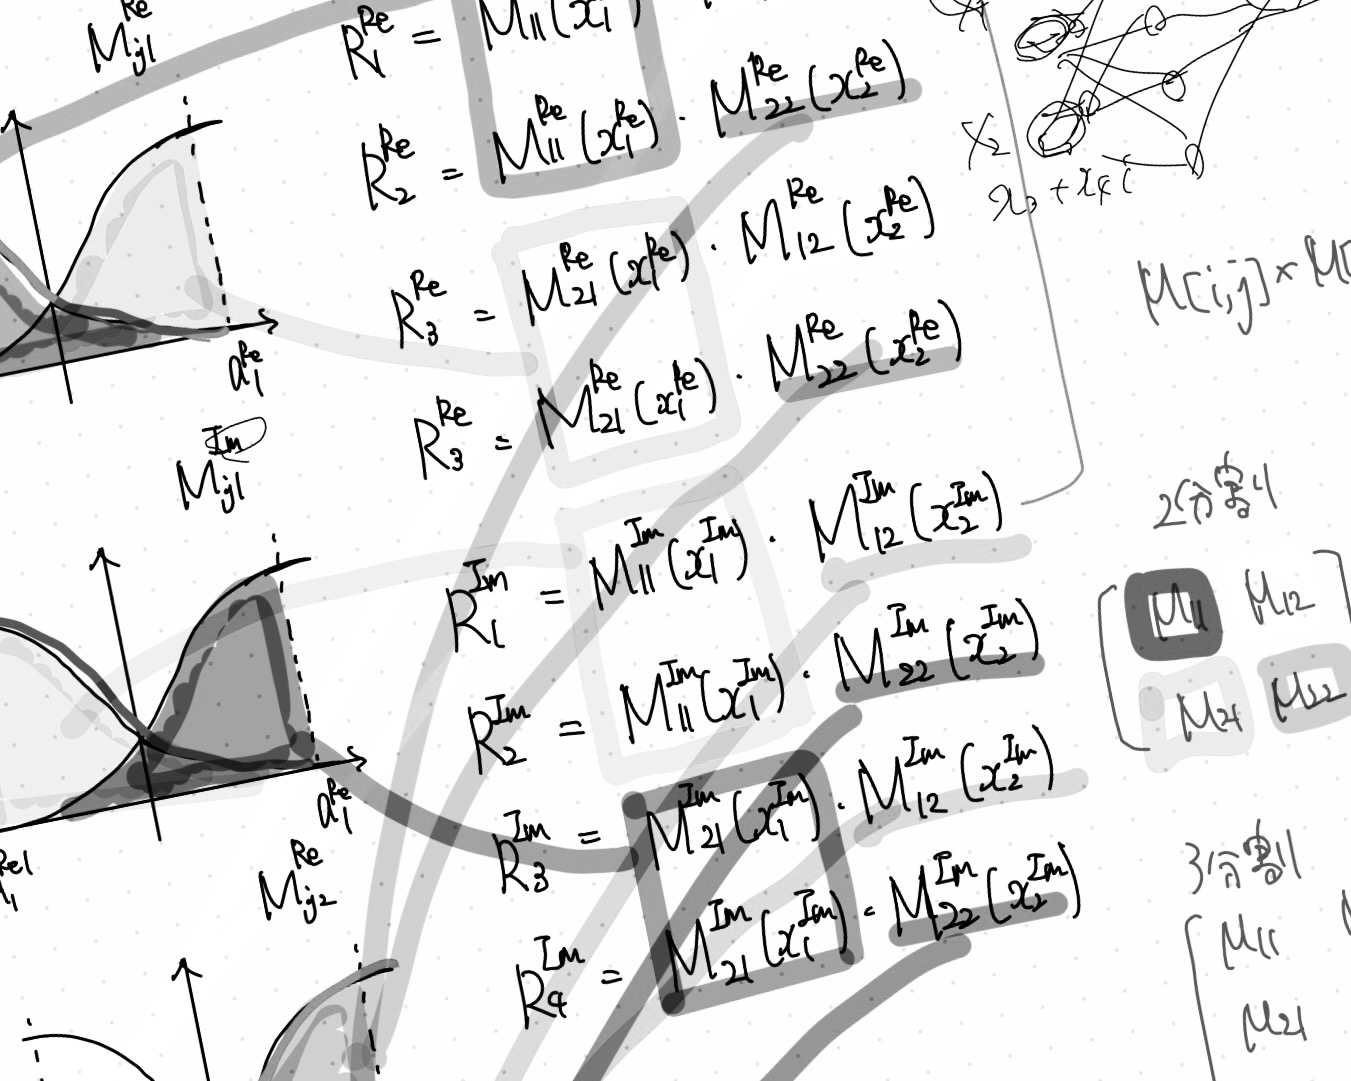 M_{j1}^{Re}
R_1^{Re} = M_{11}(x_1
R_2^{Re} = M_{11}^{Re}(x_1^{Re}) · M_{22}^{Re}(x_2^{Re})
R_3^{Re} = M_{21}^{Re}(x_1^{Re}) · M_{12}^{Re}(x_2^{Re})
R_3^{Re} = M_{21}^{Re}(x_1^{Re}) · M_{22}^{Re}(x_2^{Re})
a_1^{Re}
M_{j1}^{Im}
R_1^{Im} = M_{11}^{Im}(x_1^{Im}) · M_{12}^{Im}(x_2^{Im})
R_2^{Im} = M_{11}^{Im}(x_1^{Im}) · M_{22}^{Im}(x_2^{Im})
R_3^{Im} = M_{21}^{Im}(x_1^{Im}) · M_{12}^{Im}(x_2^{Im})
R_4^{Im} = M_{21}^{Im}(x_1^{Im}) · M_{22}^{Im}(x_2^{Im})
a_1^{Re}
M_{j2}^{Re}
X_2
x_3 + x_4 i
M[i,j] × M
2分割
M11 M12
M21 M22
3分割
M11
M21